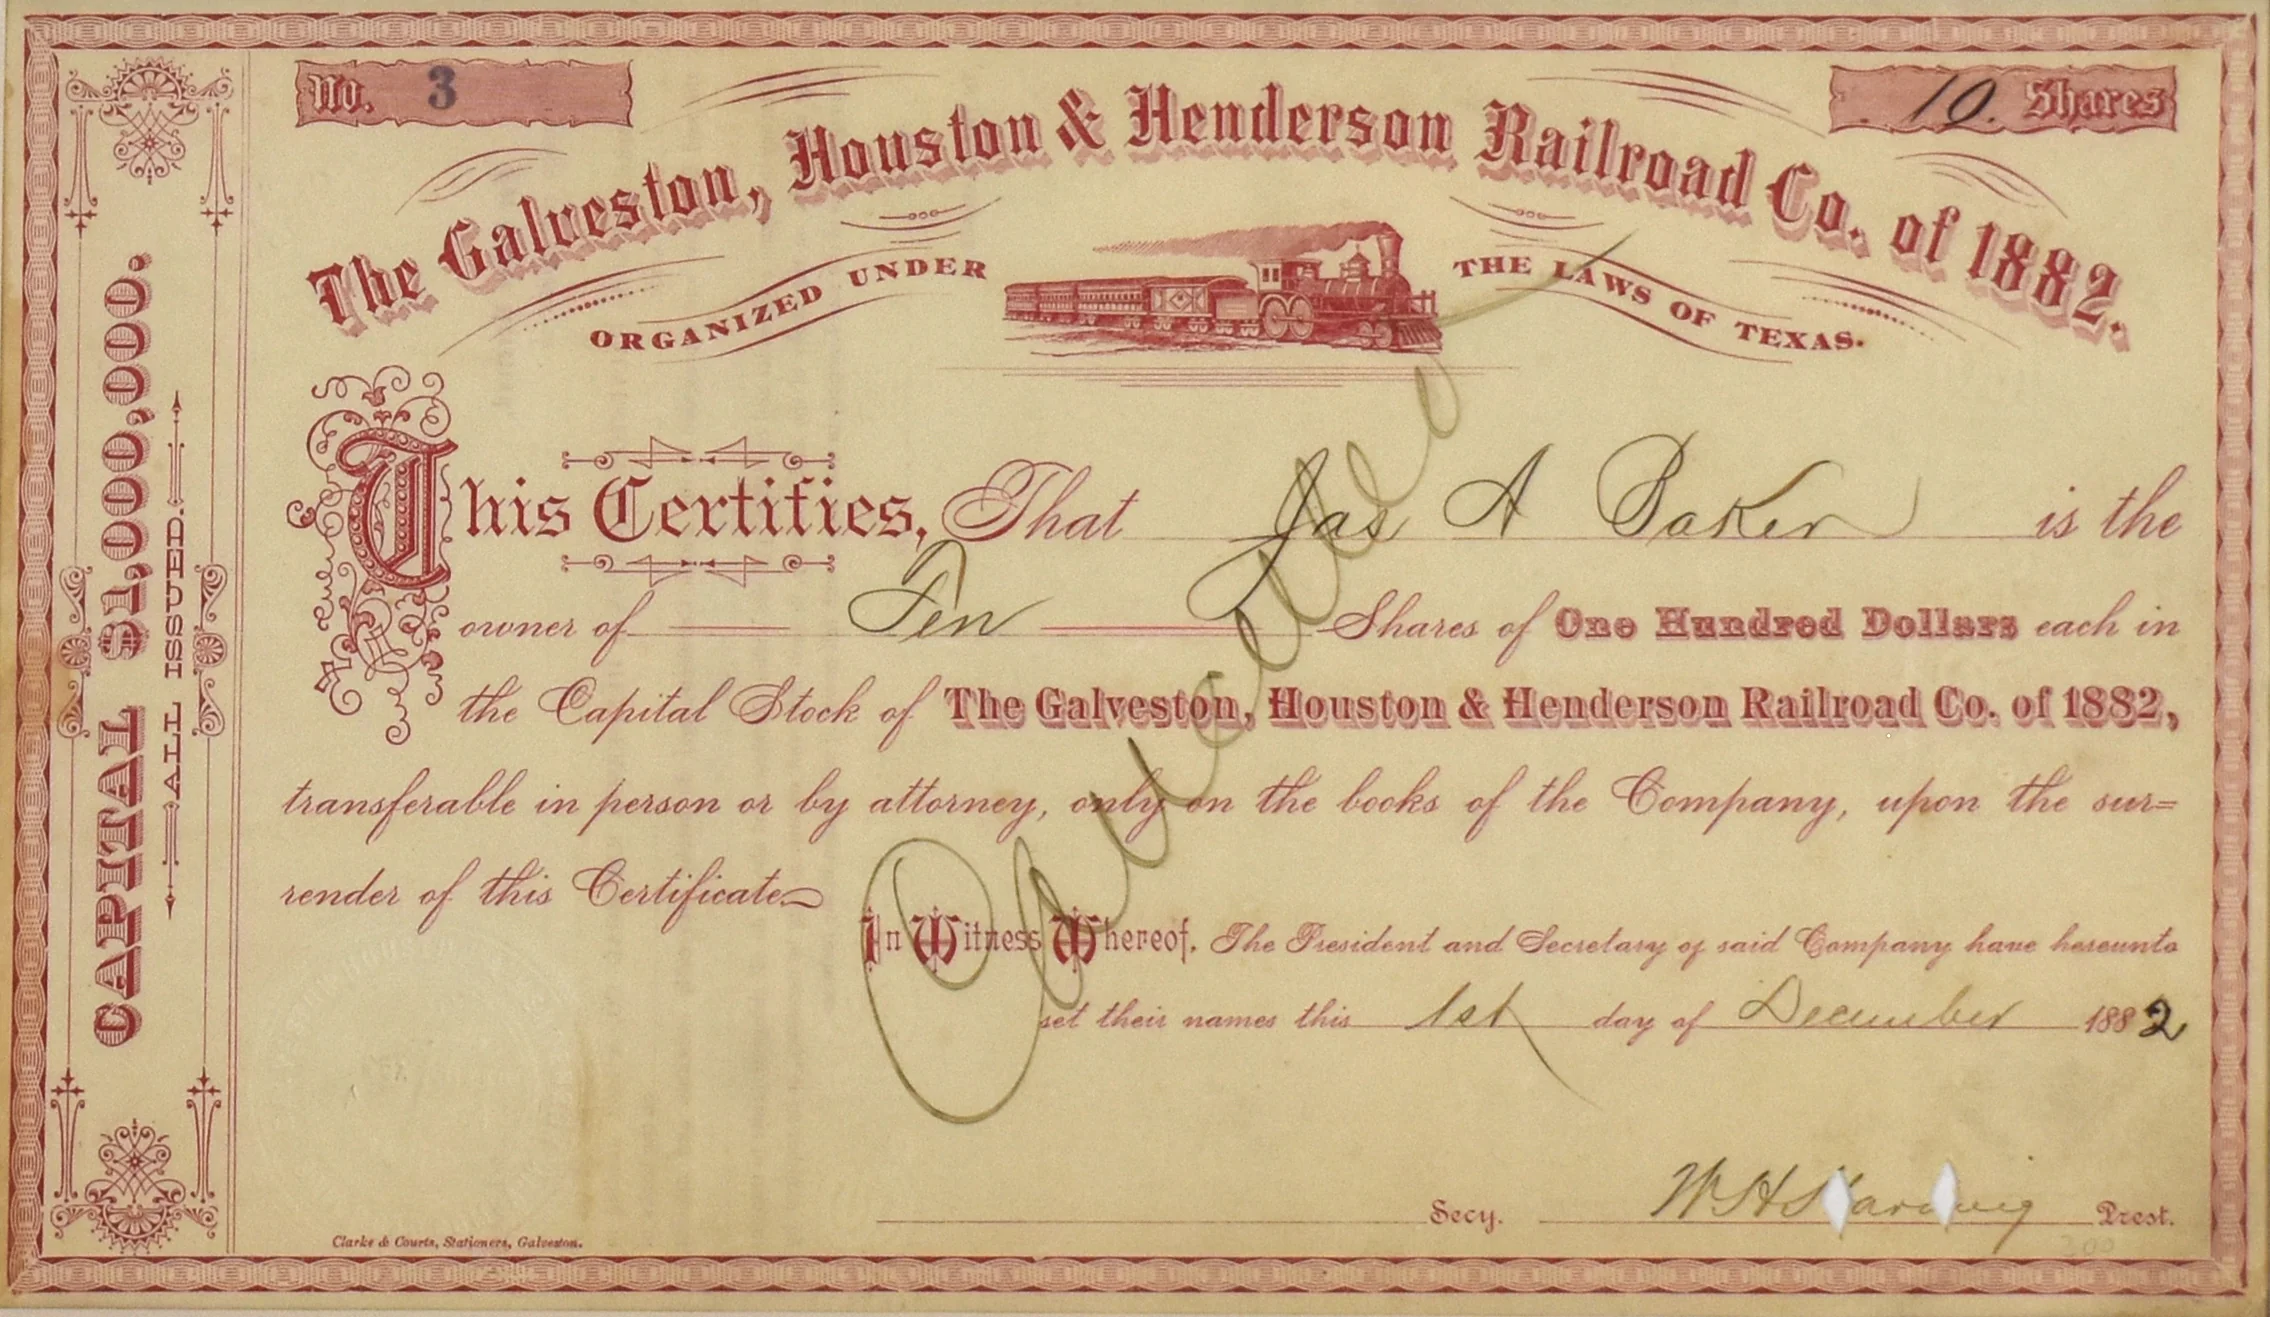 No. 3
10. Shares
The Galveston, Houston & Henderson Railroad Co. of 1882.
ORGANIZED UNDER THE LAWS OF TEXAS.
CAPITAL $1,000,000.
ALL ISSUED.
This Certifies, That Jas A Baker is the
owner of Ten Shares of One Hundred Dollars each in
the Capital Stock of The Galveston, Houston & Henderson Railroad Co. of 1882,
transferable in person or by attorney, only on the books of the Company, upon the sur=
render of this Certificate
Cancelled
In Witness Whereof, The President and Secretary of said Company have hereunto
set their names this 1st day of December 1882
Secy. W H Harding Prest.
300
Clarke & Courts, Stationers, Galveston.